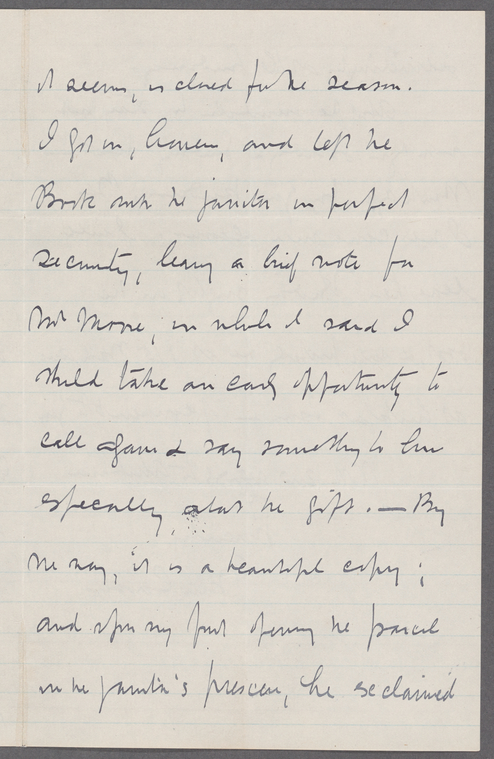 it seems, is closed for the season.
I got in, however, and left the
Book with the janitor in perfect
security, leaving a brief note for
Mr Moore, in which I said I
should take an early opportunity to
call again & say something to him
especially, about the gift. — By
the way, it is a beautiful copy;
and upon my first opening the parcel
in the janitor's presence, he exclaimed